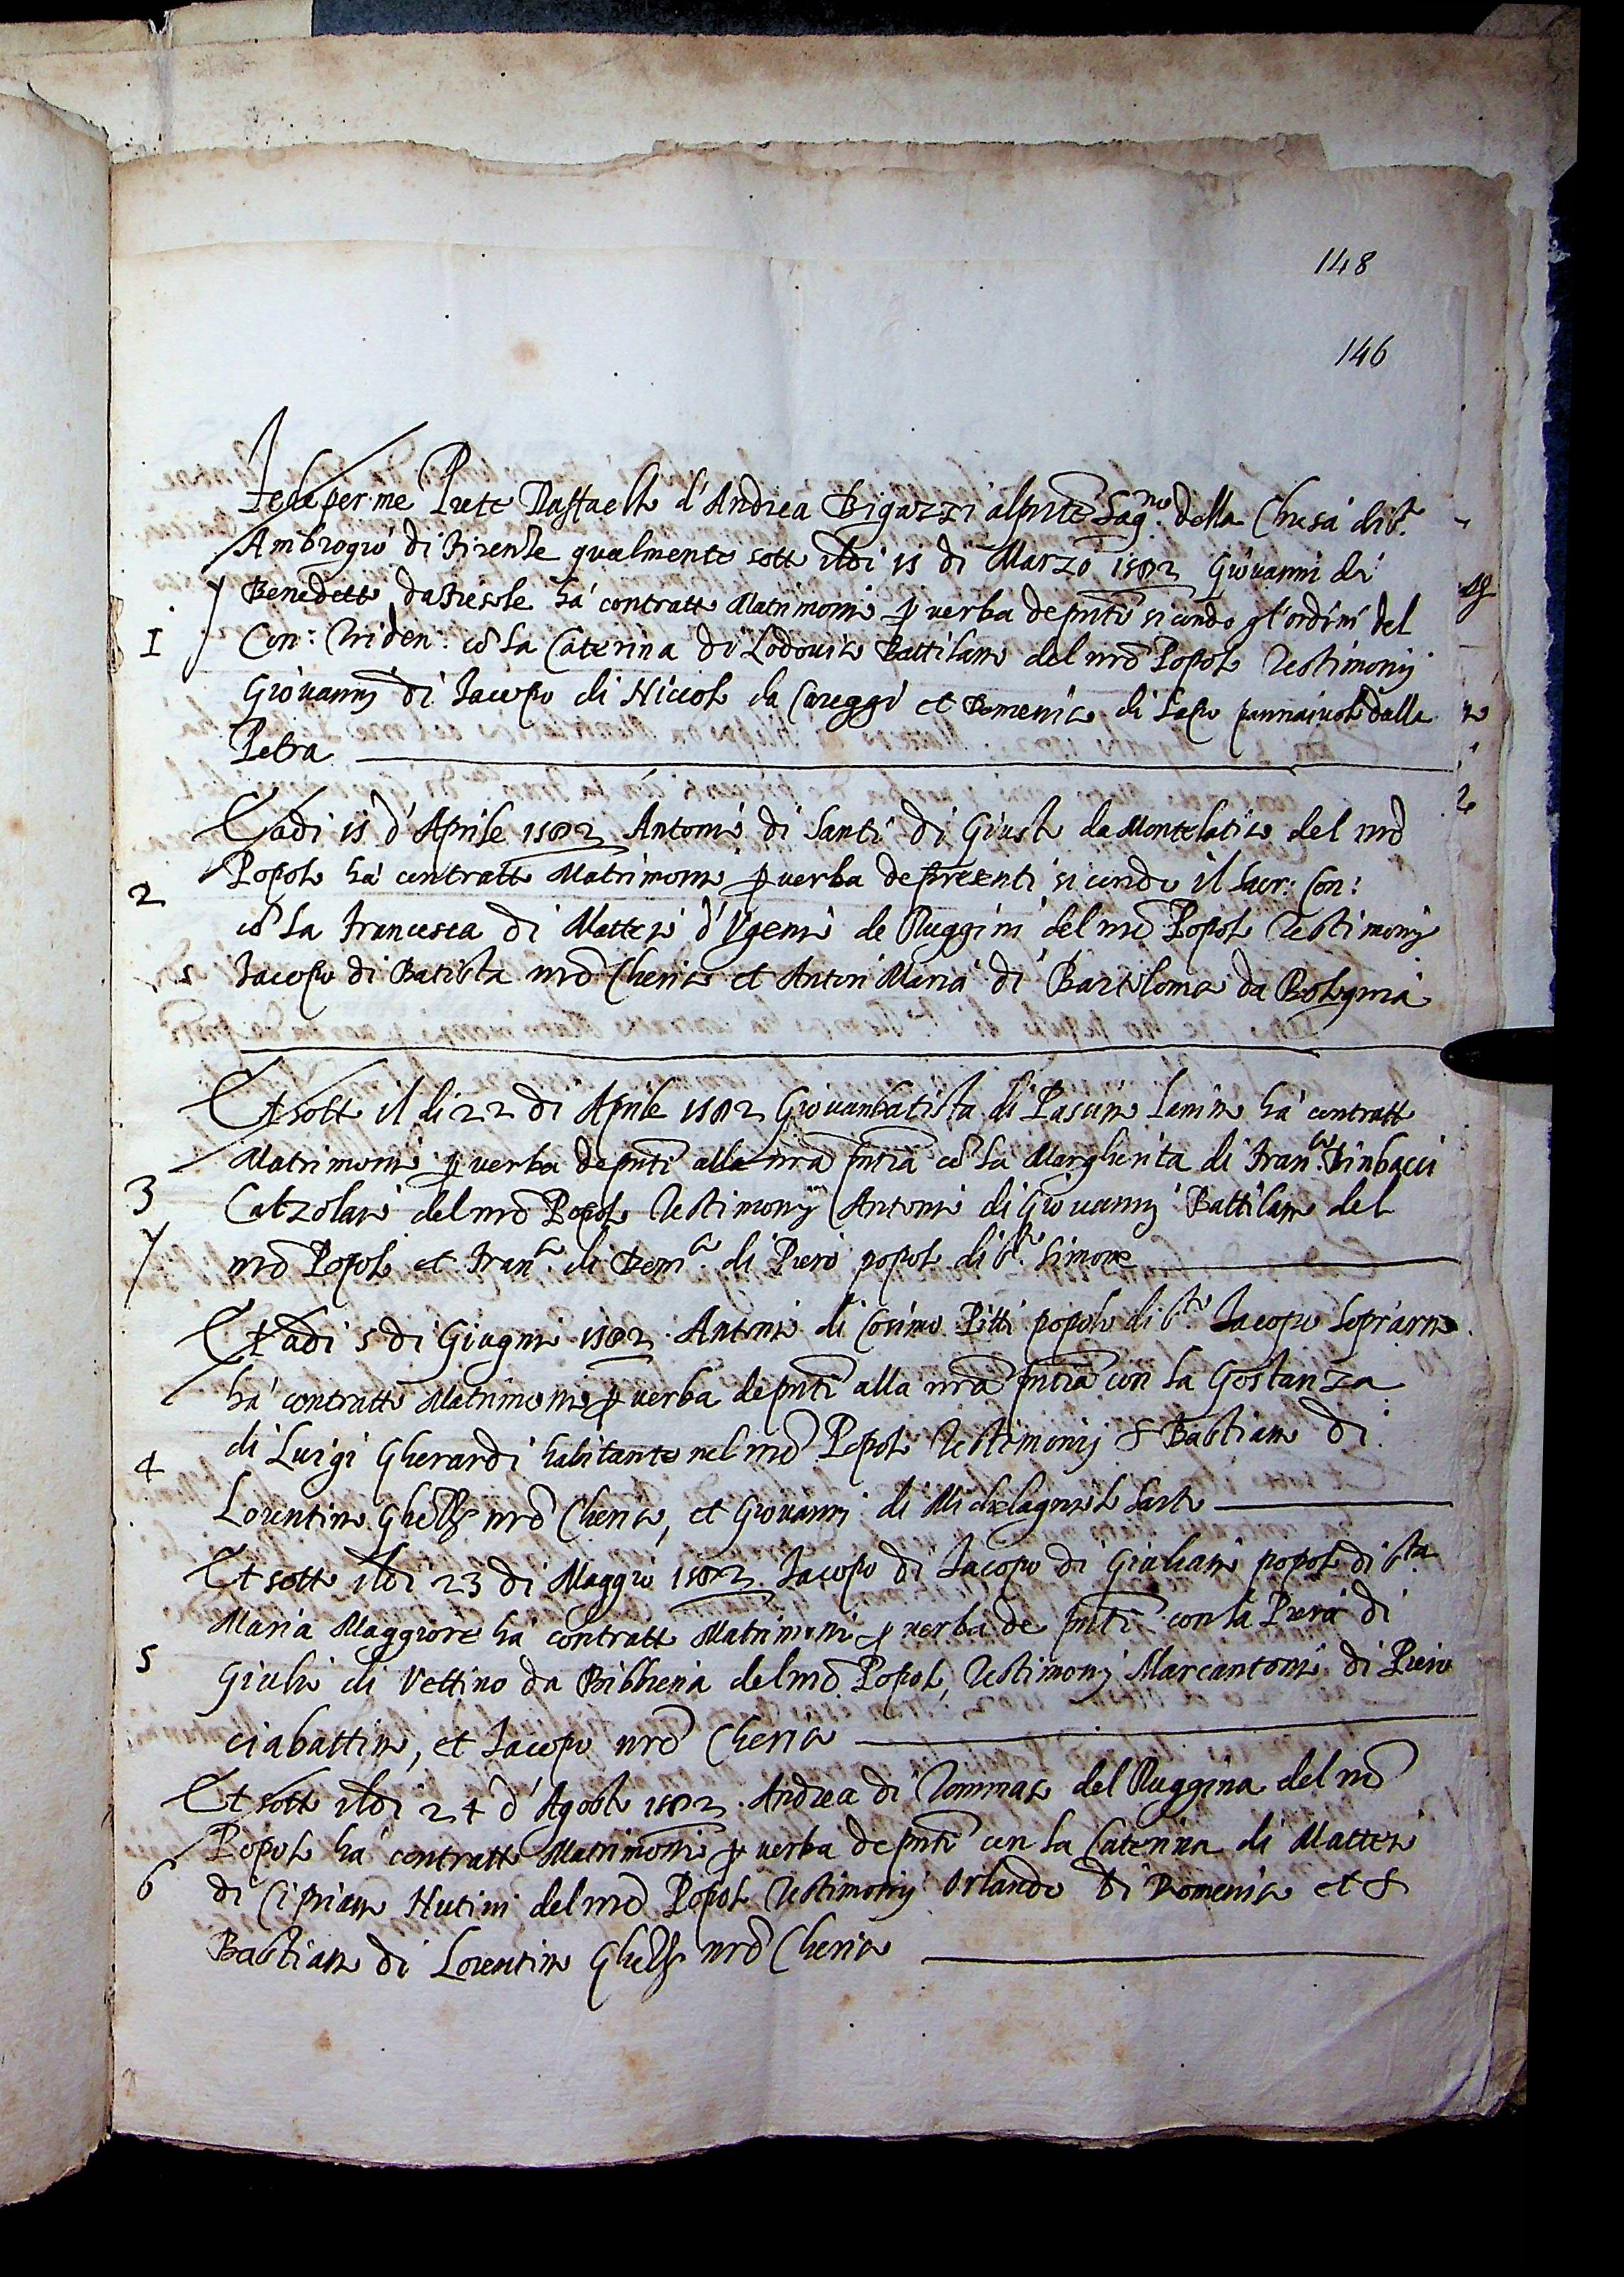 148
146
Fede per me Prete Raffaello d'Andrea Bigazzi al pnte Sagno. della Chiesa di Sto.
Ambrogio di Firenze qualmente sotto il di 15 di Marzo 1582 Giovanni di
Benedetto da Fiesole ha contratto Matrimonio p verba de pnti secondo gl'ordini del
1 Con: Triden: cō la Caterina di Lodovico Battilano del nrō Popolo Testimonij
Giovannj di Iacopo di Niccolo da Careggi et Domenico di Lapo pannaiuolo dalla
Petra
E adi 15 d'Aprile 1582 Antonio di Santi di Giusto da Montelatico del nrō
Popolo ha contratto Matrimonio p verba de preenti secondo il Sacr: Con:
2 cō la Francesca di Matteo d'Ugenio de Ruggini del nrō Popolo Testimonij
Iacopo di Batista nrō Cherico et Anton Maria di Bartolomeo da Bologna
Et sotto il di 22 di Aprile 1582 Giovanbatista di Pasquino ha contratto
Matrimonio p verba de pnti alla nrā pntia cō la Margherita di Franco. Binbacci
3 Calzolaio del nrō Popolo Testimonij Antonio di Giovannj Battilano del
nrō Popolo et Franco. di Domco. di Piero popolo di S. Simone
Et adi 5 di Giugno 1582 Antonio di Cosimo Pitti popolo di Sto Iacopo Sopr'arno
ha contratto Matrimonio p verba de pnti alla nrā pntia con la Gostanza
4 di Luigi Gherardi habitante nel nrō Popolo Testimonij S Bastiano di
Lorentino nrō Cherico, et Giovanni di Michelagnolo Sarto
Et sotto il di 23 di Maggio 1582 Iacopo di Iacopo di Giuliano popolo di Sta
Maria Maggiore ha contratto Matrimonio p verba de pnti con la Piera di
5 Giulio di Vettino da Bibbiena del nrō Popolo, Testimonj Marcantonio di Piero
ciabattino, et Iacopo nrō Cherico
Et sotto il di 24 d'Agosto 1582. Andrea di Tommaso del Ruggina del nrō
Popolo ha contratto Matrimonio p verba de pnti con la Caterina di Matteo
6 di Cipriano Nutini del nrō Popolo Testimonij Orlando di Domenico et S
Bastiano di Lorentino nrō Cherico